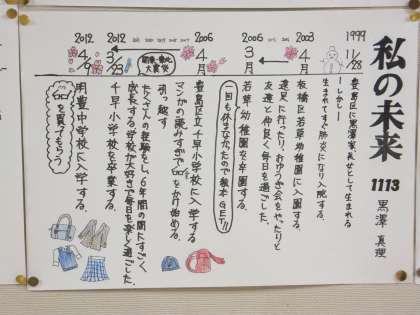 私の未来
1113 黒澤 真理
1999
11/28
豊島区に黒澤家長女として生まれる
ーしかしー
生まれてすぐ肺炎になり入院する。
2003
4月
板橋区若草幼稚園に入園する。
遠足に行ったり、おゆうぎ会をやったりと
友達と仲良く毎日を過ごした。
2006
3月
若草幼稚園を卒園する。
一回も休まなかったので教本GET!!
2006
4月
豊島区立千早小学校に入学する
引っ越す。
マンガの読みすぎでをかけ始める。
たくさんの経験をし、6年間の間にすごく
成長する学校が大好きで毎日を楽しく過ごした。
2012
3/23
千早小学校を卒業する。
2012
4/9
明豊中学校に入学する。
を買ってもらう